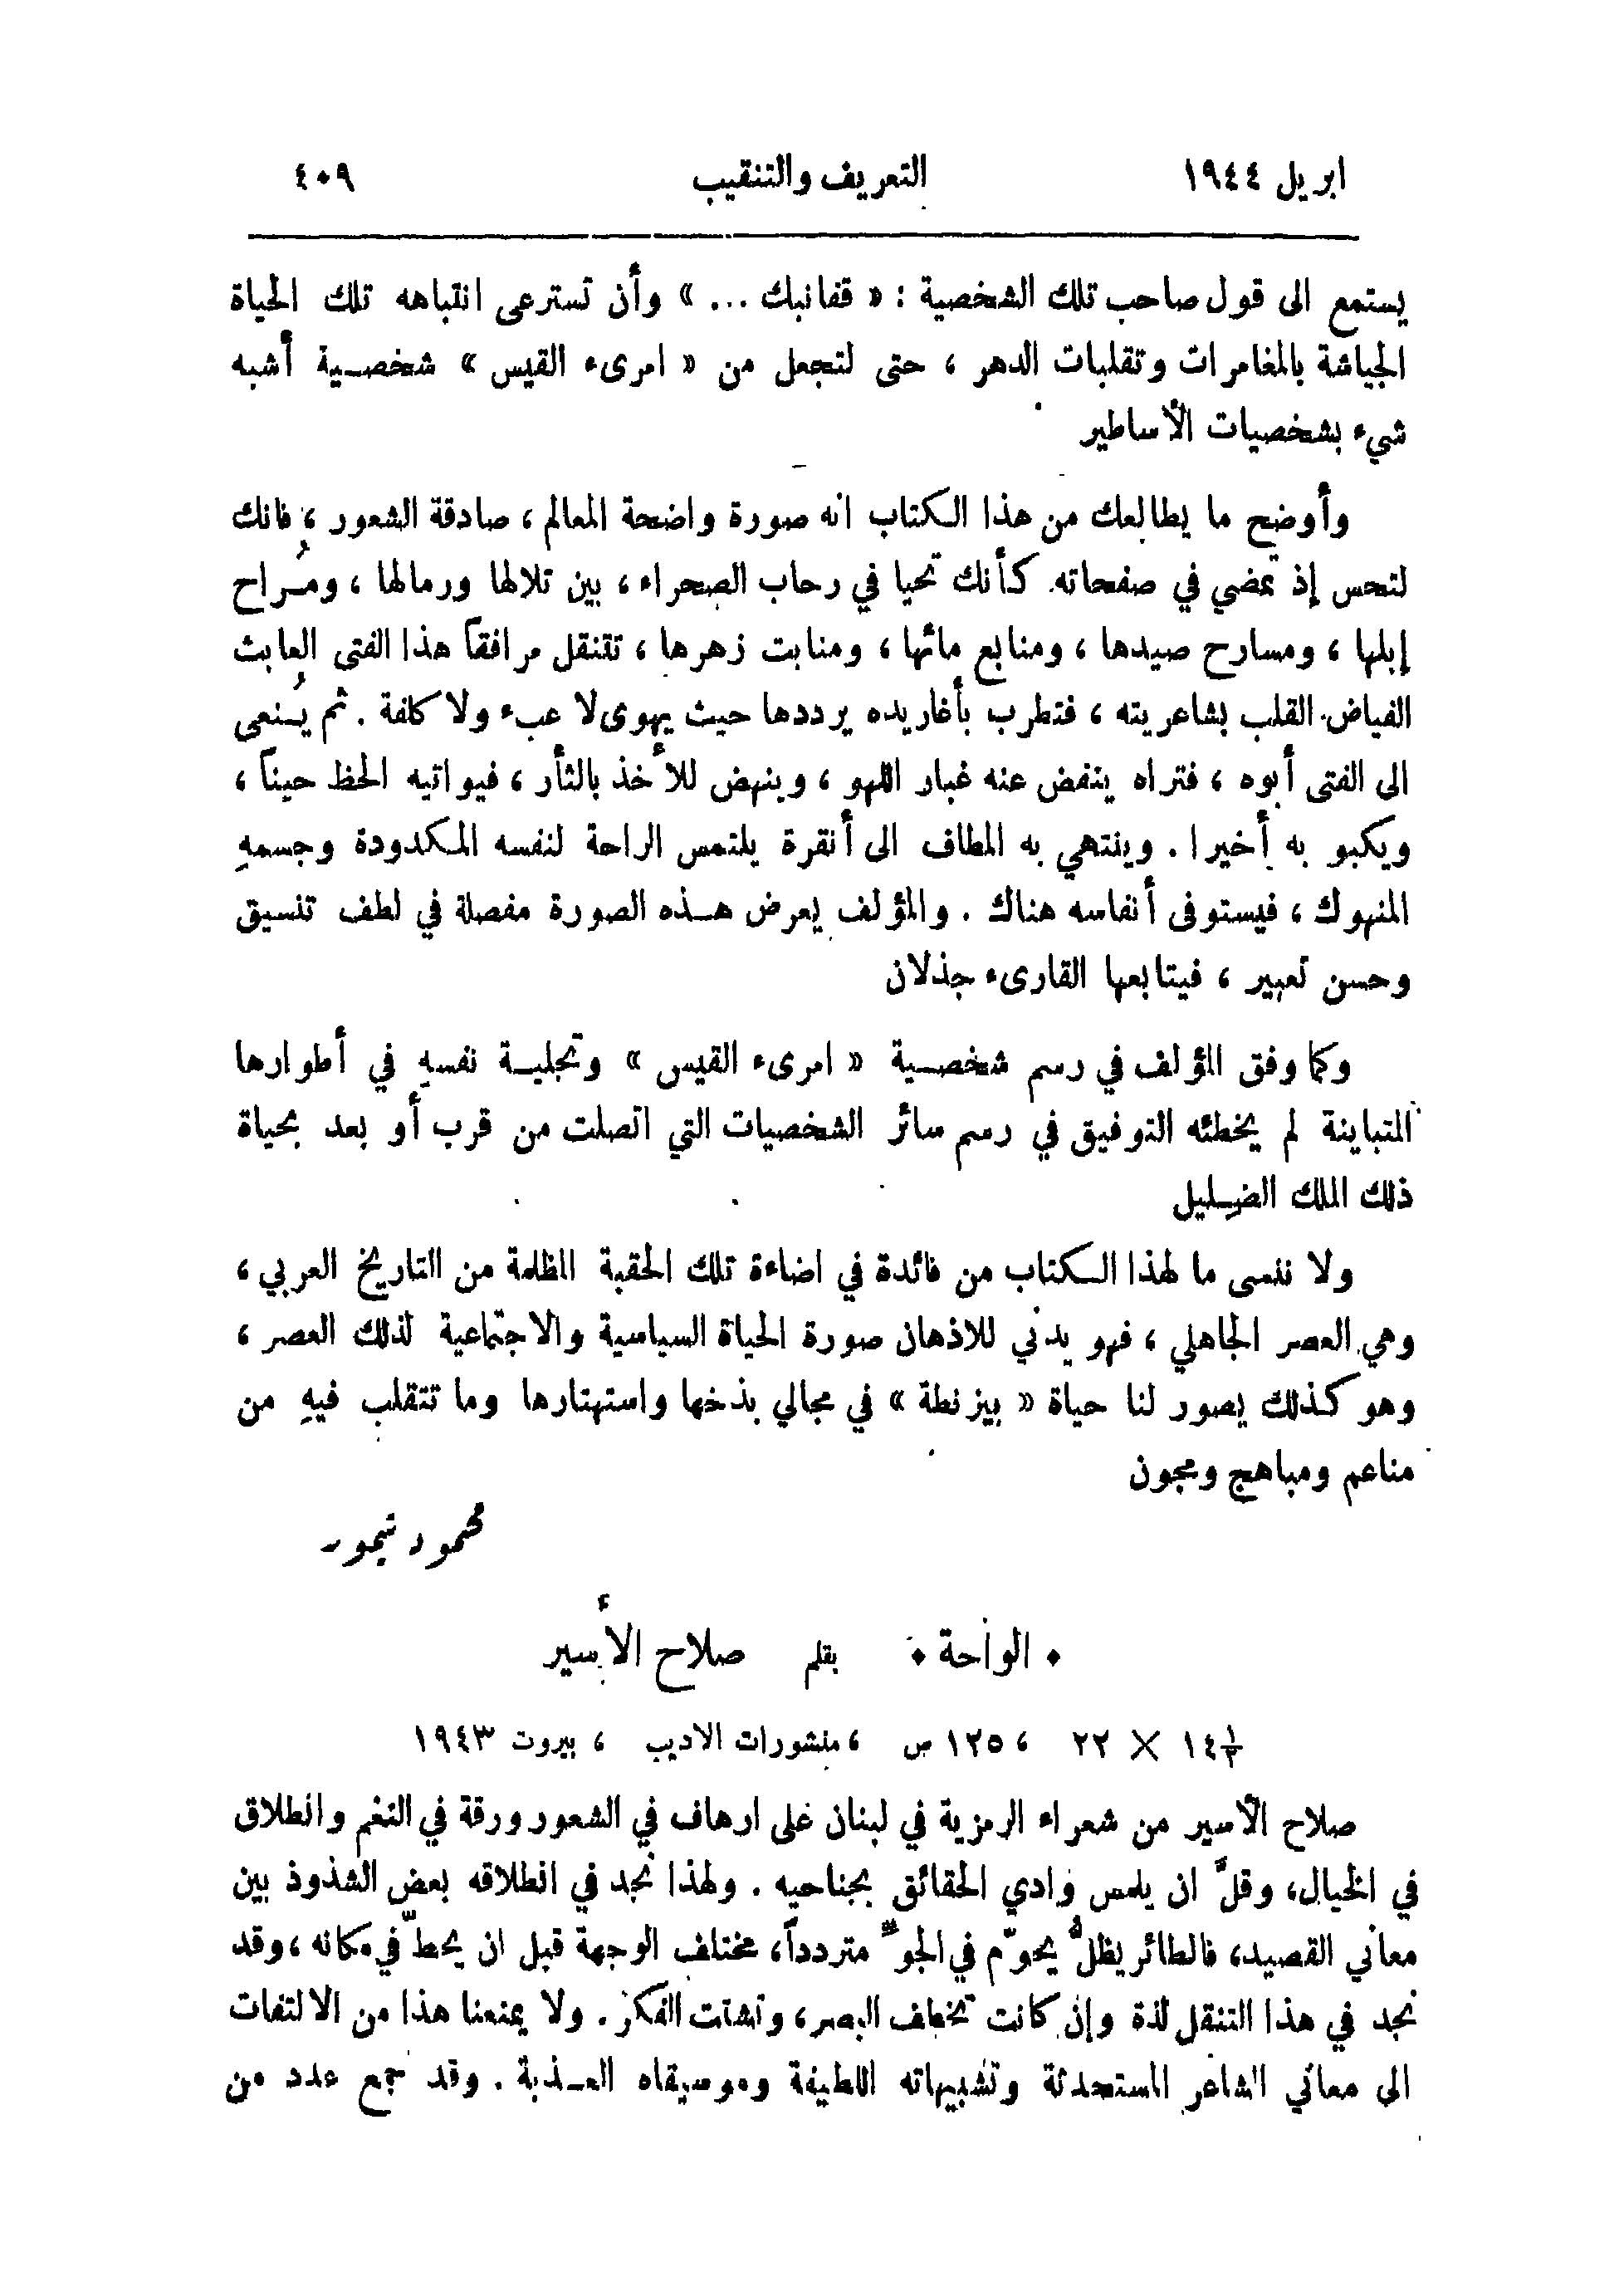 ابريل ١٩٤٤ التعريف والتنقيب ٤٠٩
يستمع الى قول صاحب تلك الشخصية : « قفانبك ... » وأن تسترعى انتباهه تلك الحياة
الجياشة بالمغامرات وتقلبات الدهر ، حتى لتجعل من « امرىء القيس » شخصـية أشبه
شيء بشخصيات الأساطير
وأوضح ما يطالعك من هذا الكتاب انه صورة واضحة المعالم ، صادقة الشعور ، فانك
لتحس إذ تمضي في صفحاته كأنك تحيا في رحاب الصحراء ، بين تلالها ورمالها ، ومُـراح
إبلها ، ومسارح صيدها ، ومنابع مائها ، ومنابت زهرها ، تتنقل مرافقاً هذا الفتى العابث
الفياض القلب بشاعريته ، فتطرب بأغاريده يرددها حيث يهوى لا عبء ولا كلفة . ثم يُـنعى
الى الفتى أبوه ، فتراه ينفض عنه غبار اللهو ، وينهض للأخذ بالثأر ، فيواتيه الحظ حيناً ،
ويكبو به أخيرا . وينتهي به المطاف الى أنقرة يلتمس الراحة لنفسه المكدودة وجسمهِ
المنهوك ، فيستوفى أنفاسه هناك . والمؤلف يعرض هـذه الصورة مفصلة في لطف تنسيق
وحسن تعبير ، فيتابعها القارىء جذلان
وكما وفق المؤلف في رسم شخصـية « امرىء القيس » وتجليـة نفسهِ في أطوارها
المتباينة لم يخطئه التوفيق في رسم سائر الشخصيات التي اتصلت من قرب أو بعد بحياة
ذلك الملك الضِـليل
ولا ننسى ما لهذا الكتاب من فائدة في اضاءة تلك الحقبة المظلمة من التاريخ العربي ،
وهي العصر الجاهلي ، فهو يدني للاذهان صورة الحياة السياسية والاجتماعية لذلك العصر ،
وهو كذلك يصور لنا حياة « بيزنطة » في مجالي بذخها واستهتارها وما تتقلب فيهِ من
مناعم ومباهج ومجون
محمود تيمور
• الواحة • بقلم صلاح الأسير
١٤½ × ٢٢ ، ١٢٥ ص ، منشورات الاديب ، بيروت ١٩٤٣
صلاح الأسير من شعراء الرمزية في لبنان على ارهاف في الشعور ورقة في النغم وانطلاق
في الخيال، وقلَّ ان يلمس وادي الحقائق بجناحيه . ولهذا نجد في انطلاقه بعض الشذوذ بين
معاني القصيد، فالطائر يظلُّ يحوّم في الجوّ متردداً، مختلف الوجهة قبل ان يحطّ في مكانه ، وقد
نجد في هذا التنقل لذة وإن كانت تخطف البصر، وتشتت الفكر . ولا يمنعنا هذا من الالتفات
الى معاني الشاعر المستحدثة وتشبيهاته اللطيفة وموسيقاه العـذبة . وقد جمع عدد من